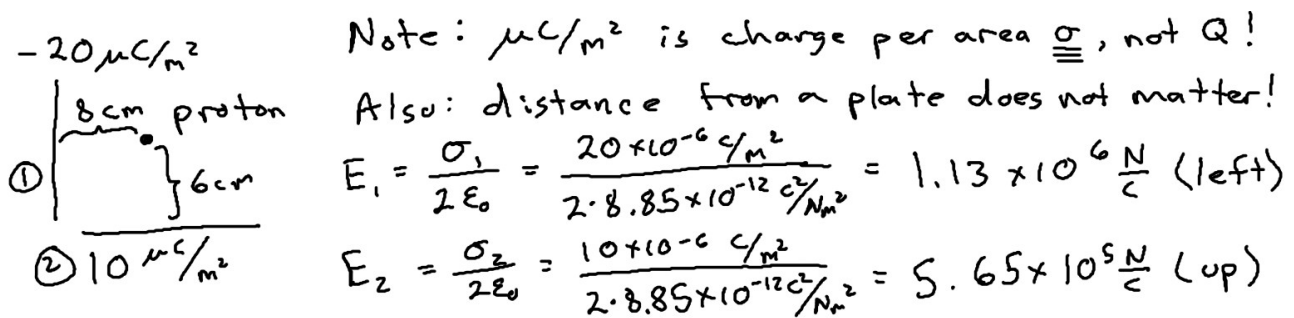 -20 μC/m²
8cm proton
①
6cm
② 10 μC/m²
Note: μC/m² is charge per area σ, not Q!
Also: distance from a plate does not matter!
E₁ = σ₁/2ε₀ = 20×10⁻⁶ C/m² / 2·8.85×10⁻¹² C²/Nm² = 1.13 ×10⁶ N/C (left)
E₂ = σ₂/2ε₀ = 10×10⁻⁶ C/m² / 2·8.85×10⁻¹² C²/Nm² = 5.65×10⁵ N/C (up)